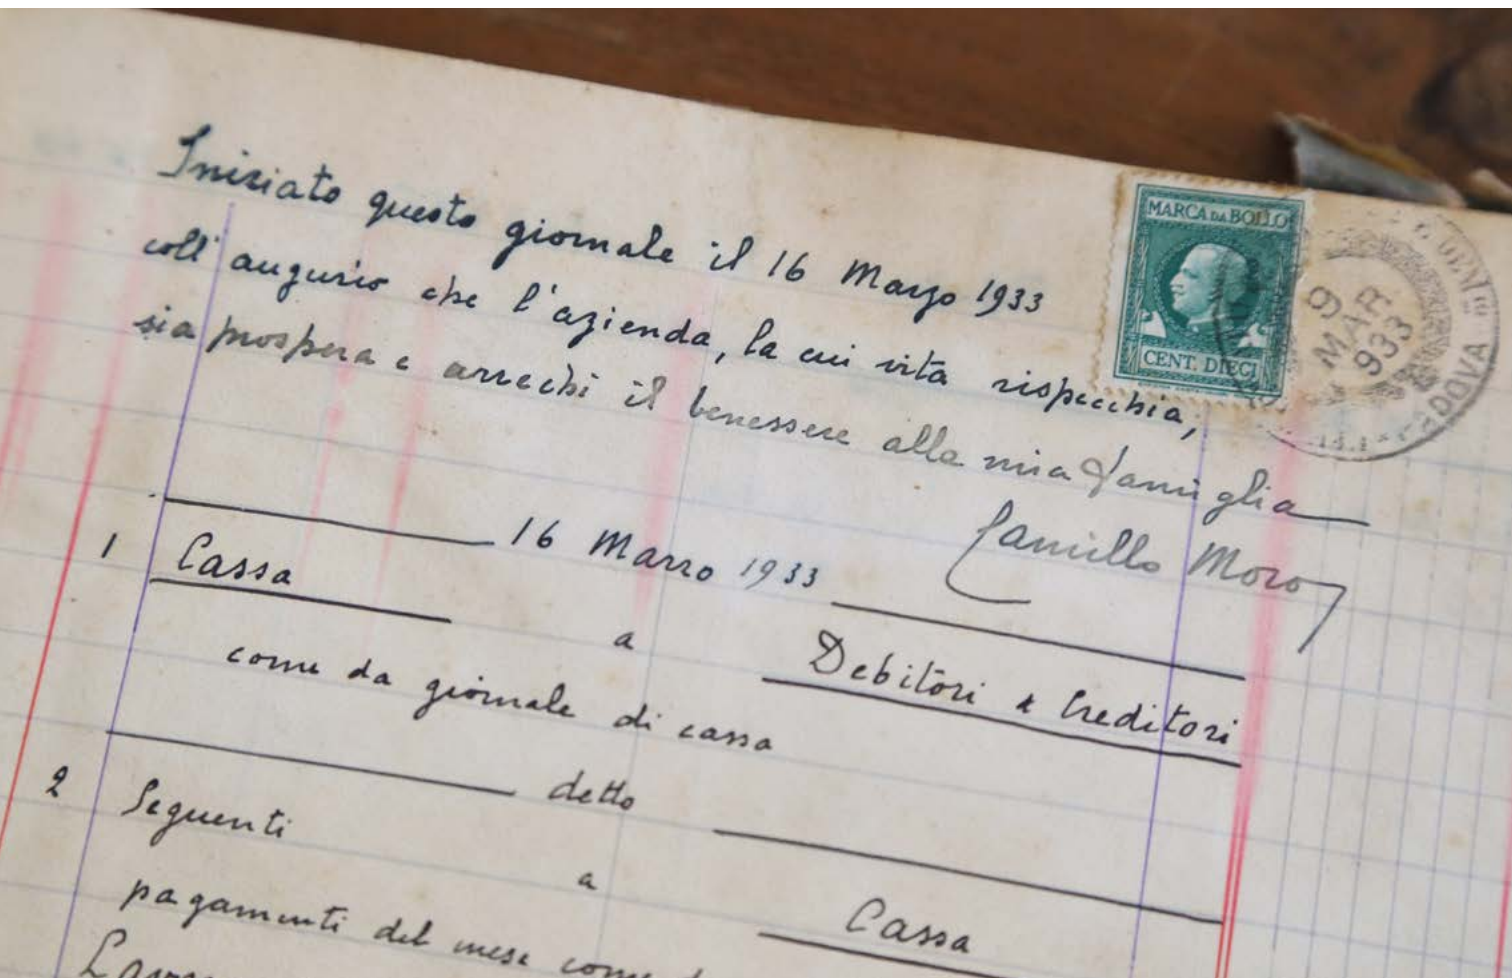 Iniziato questo giornale il 16 Marzo 1933
coll' augurio che l'azienda, la cui vita rispecchia,
sia prospera e arrechi il benessere alla mia famiglia
Camillo Moro
MARCA DA BOLLO
CENT. DIECI
9
MAR.
933
PADOVA
16 Marzo 1933
1 Cassa
a Debitori e Creditori
come da giornale di cassa
detto
2 Seguenti
a Cassa
pagamenti del mese come